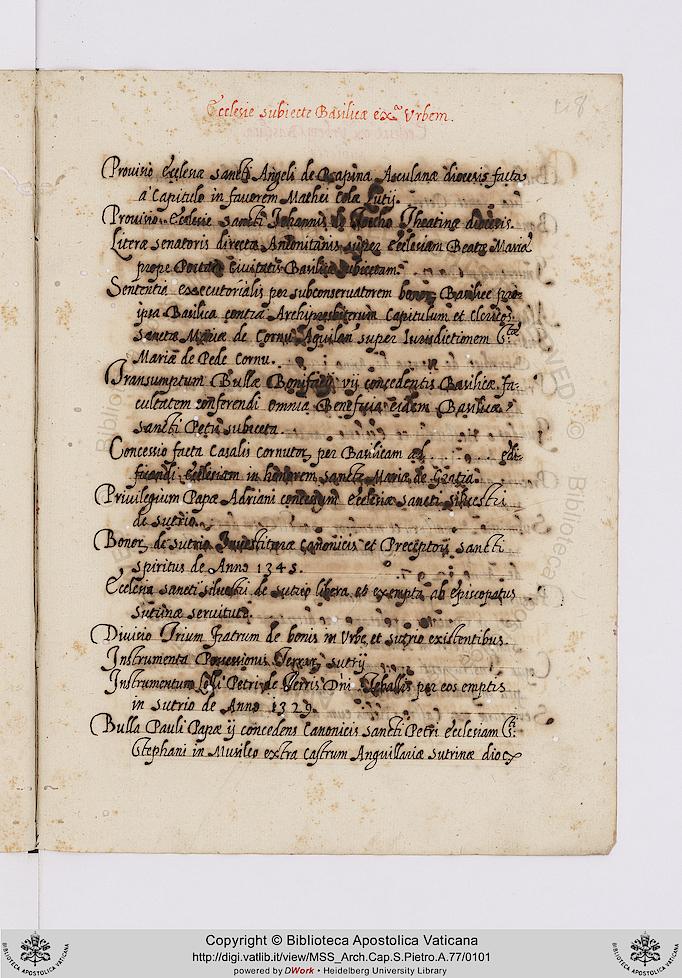 Ecclesie subiecte Basilicæ ex.ª Urbem.
Provisio Ecclesiæ sancti Angeli de Rapina Asculanæ diocesis facta
a Capitulo in favorem Mathei Colæ Lutij.
Provisio Ecclesie sancti Johannis de Theatinæ diocesis.
Literæ senatoris directæ super Ecclesiam Beatæ Mariæ
prope Portam Civitatis Basilicæ subiectam.
Sententia essecutorialis per subconservatorem bonor. Basilicæ pro
ipsa Basilica contra Archipresbiterum Capitulum et clericos
sanctæ Mariæ de Cornu Aquilan super Iurisdictionem S.tæ
Mariæ de Pede Cornu.
Transumptum Bullæ Bonifacij vij concedentis Basilicæ fa-
cultatem conferendi omnia Beneficia eidem Basilicæ
sancti Petri subiecta.
Concessio facta Casalis cornutor per Basilicam ad edi-
ficandi Ecclesiam in honorem sanctæ Mariæ de Gratia.
Privilegium Papæ Adriani Ecclesiæ sancti silvestri
de sutrio.
Bonor de sutrio Investituræ canonicis et Preceptori sancti
spiritus de Anno 1345.
Ecclesia sancti silvestri de sutrio libera et exempta ab Episcopatus
Sutrinæ servitute.
Divisio Trium fratrum de bonis in Urbe et sutrio existentibus.
Instrumenta Possessionis Terrar sutrij
Instrumentum Petri de Terris Dni per eos emptis
in sutrio de Anno 1329.
Bulla Pauli Papæ ij concedens Canonicis sancti Petri ecclesiam S.ti
Stephani in Musileo extra castrum Anguillariæ sutrinæ dioc
Copyright © Biblioteca Apostolica Vaticana
http://digi.vatlib.it/view/MSS_Arch.Cap.S.Pietro.A.77/0101
powered by DWork • Heidelberg University Library